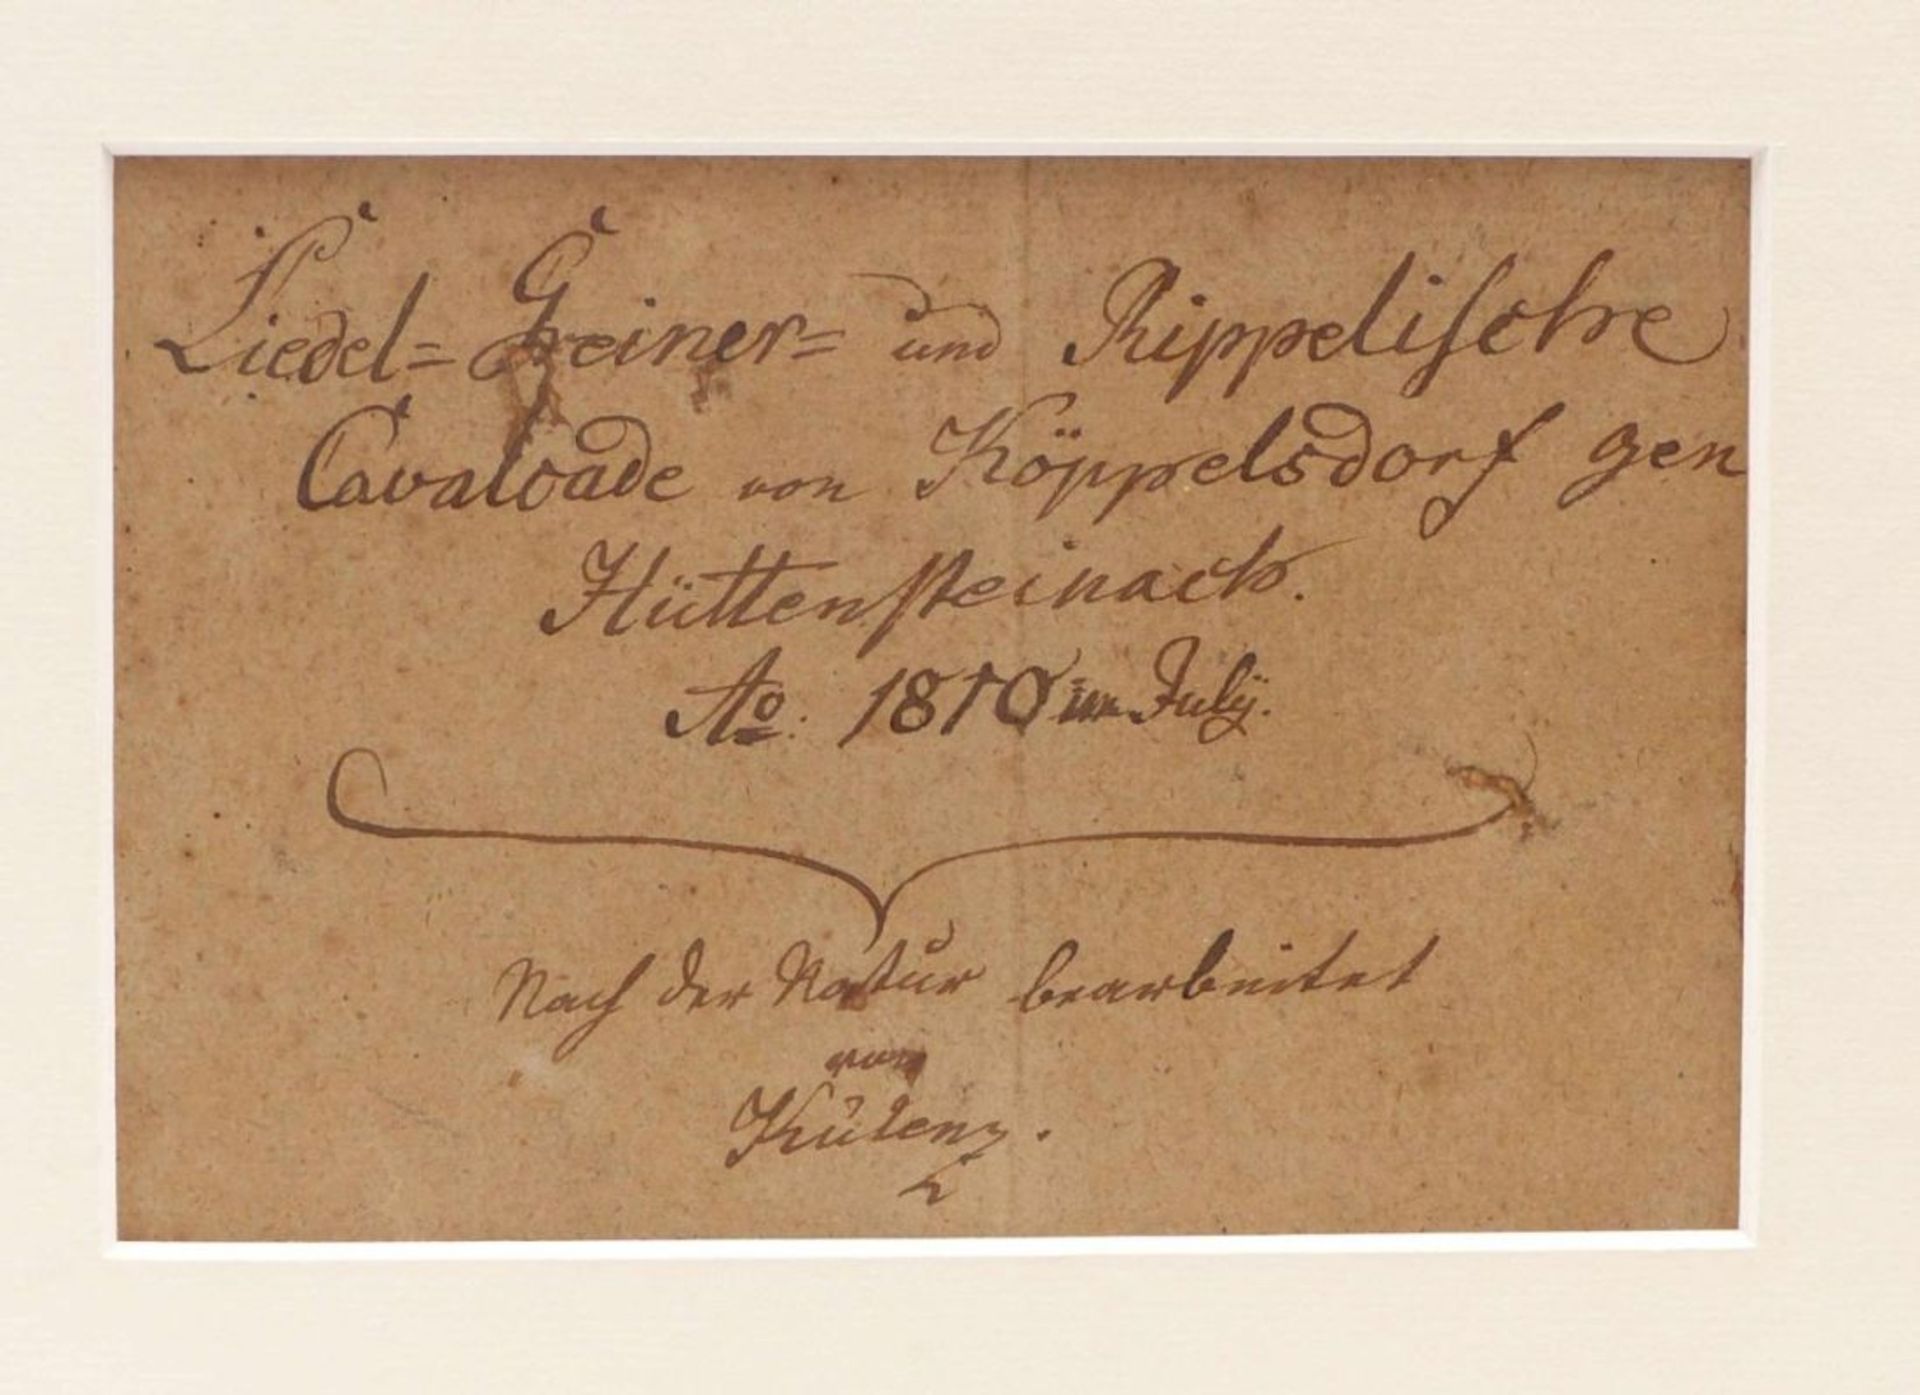 Liedel= Greiner= und Rippelische
Cavalcade von Köppelsdorf gen
Hüttensteinach.
Ao. 1810 im July.
Nach der Natur bearbeitet
von